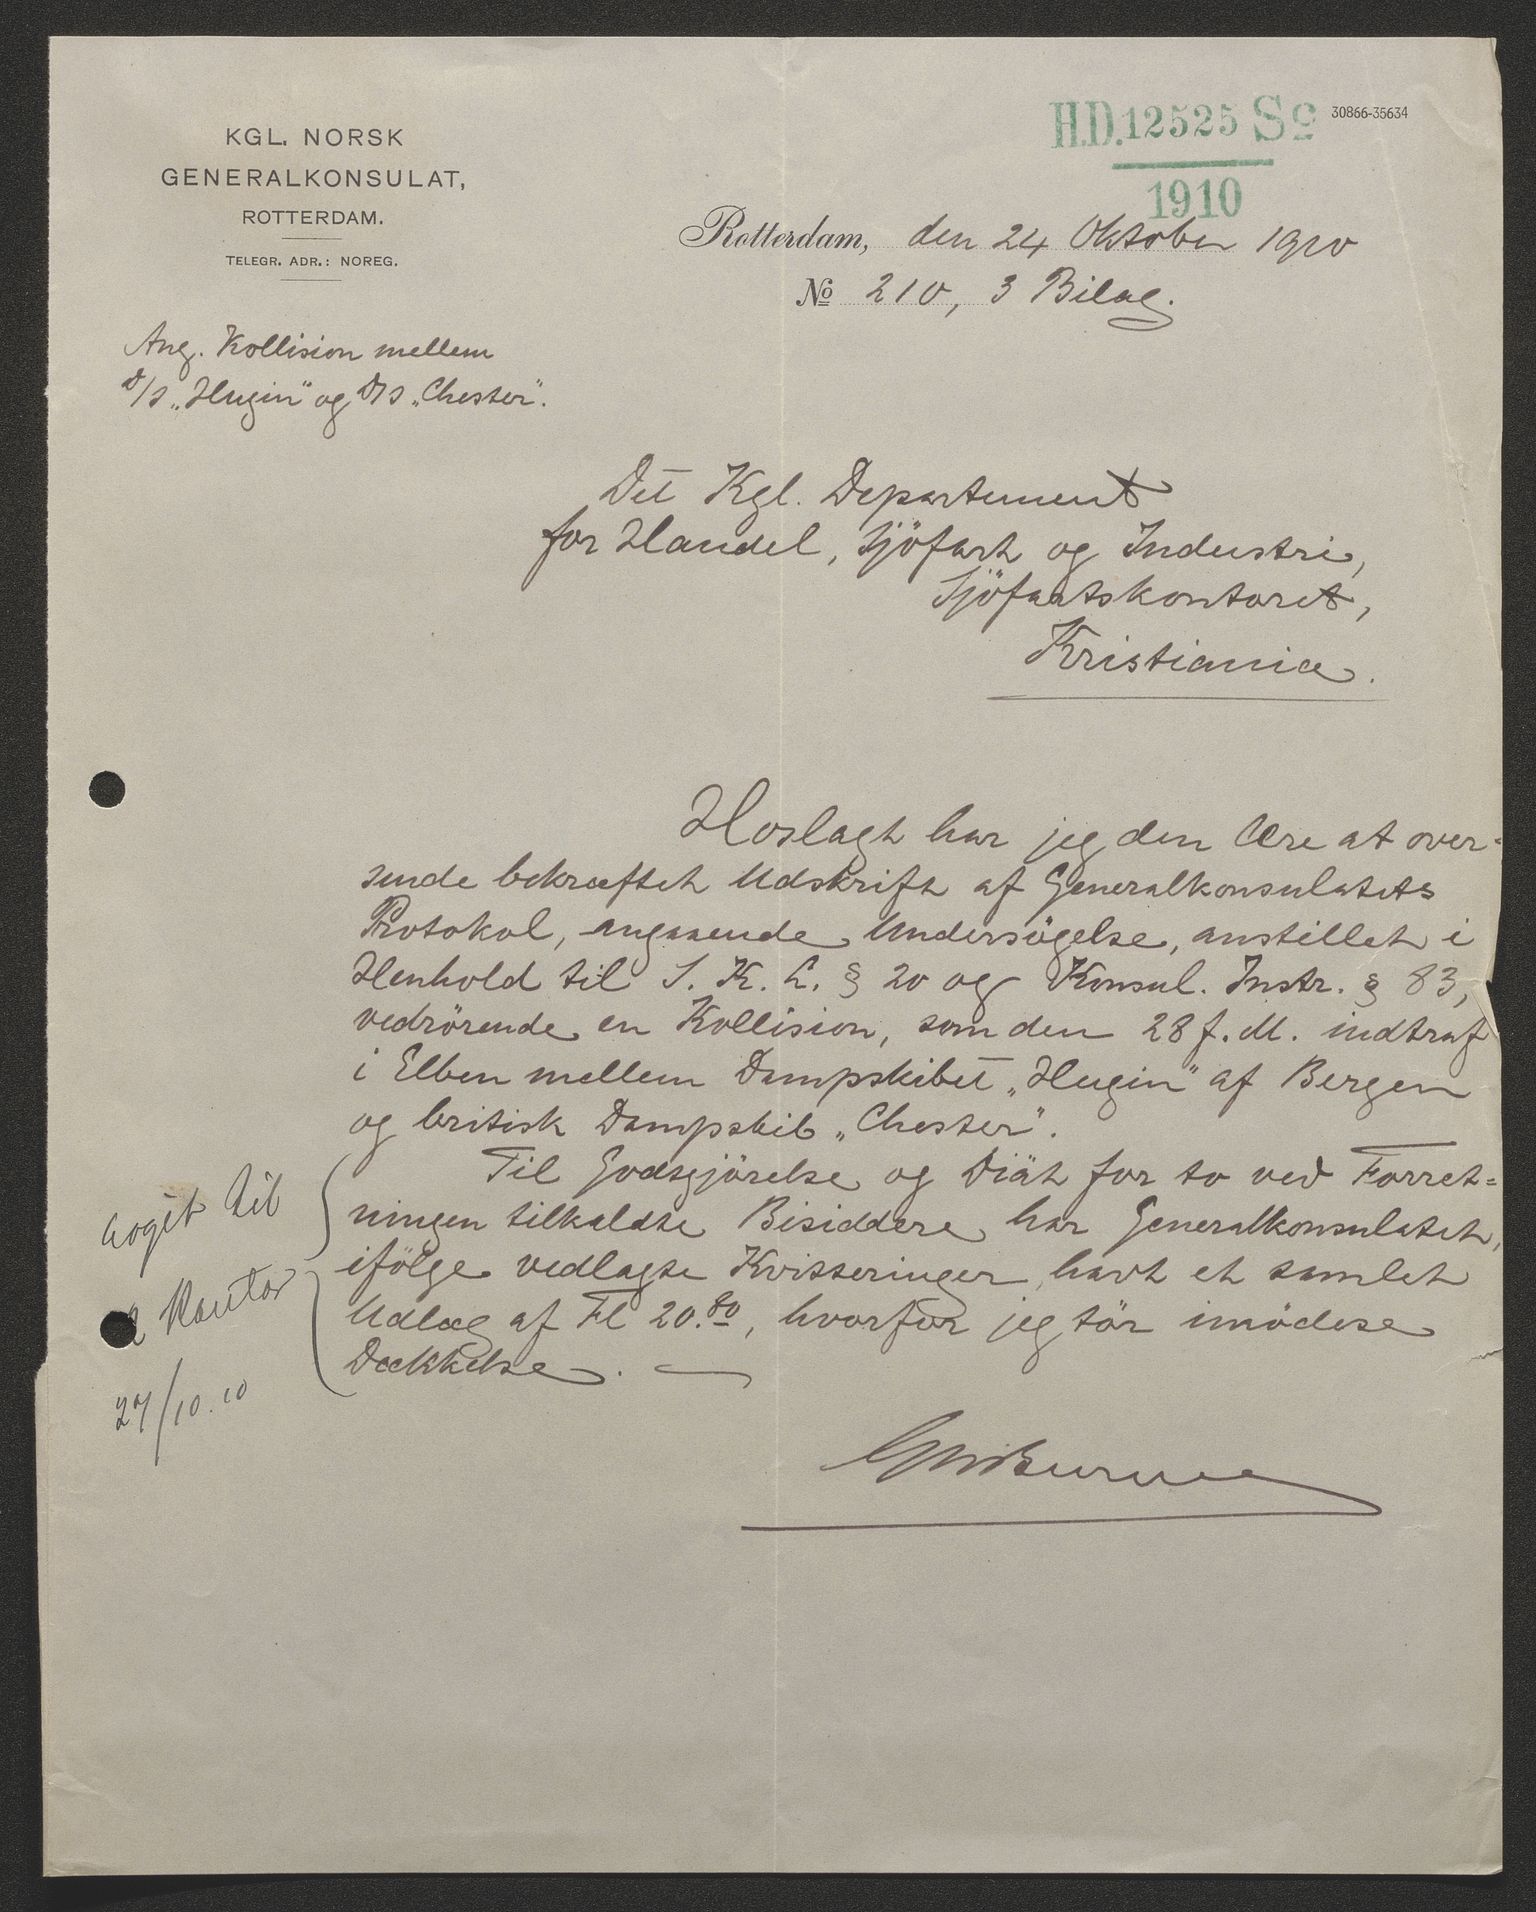 KGL. NORSK
GENERALKONSULAT,
ROTTERDAM.
TELEGR. ADR.: NOREG.
H.D. 12525 Sc
1910
30866-35634
Rotterdam, den 24 Oktober 1910
No 210, 3 Bilag.
Ang. Kollision mellem
D/S „Hugin" og D/S „Chester".
Det Kgl. Departement
for Handel, Sjöfart og Industri,
Sjöfartskontoret,
Kristiania.
Hoslagt har jeg den Ære at over-
sende bekræftet Udskrift af Generalkonsulatets
Protokol, angaaende Undersögelse, anstillet i
Henhold til S. K. L. § 20 og Konsul. Instr. § 83,
vedrörende en Kollision, som den 28 f. M. indtraf
i Elben mellem Dampskibet „Hugin" af Bergen
og britisk Dampskib „Chester".
Til Godtgjörelse og Diät for to ved Forret=
ningen tilkaldte Bisiddere har Generalkonsulatet,
ifölge vedlagte Kvitteringer, havt et samlet
Udlæg af Fl 20.80, hvorfor jeg tör imödese
Dækkelse.
til
Kontor
27/10.10